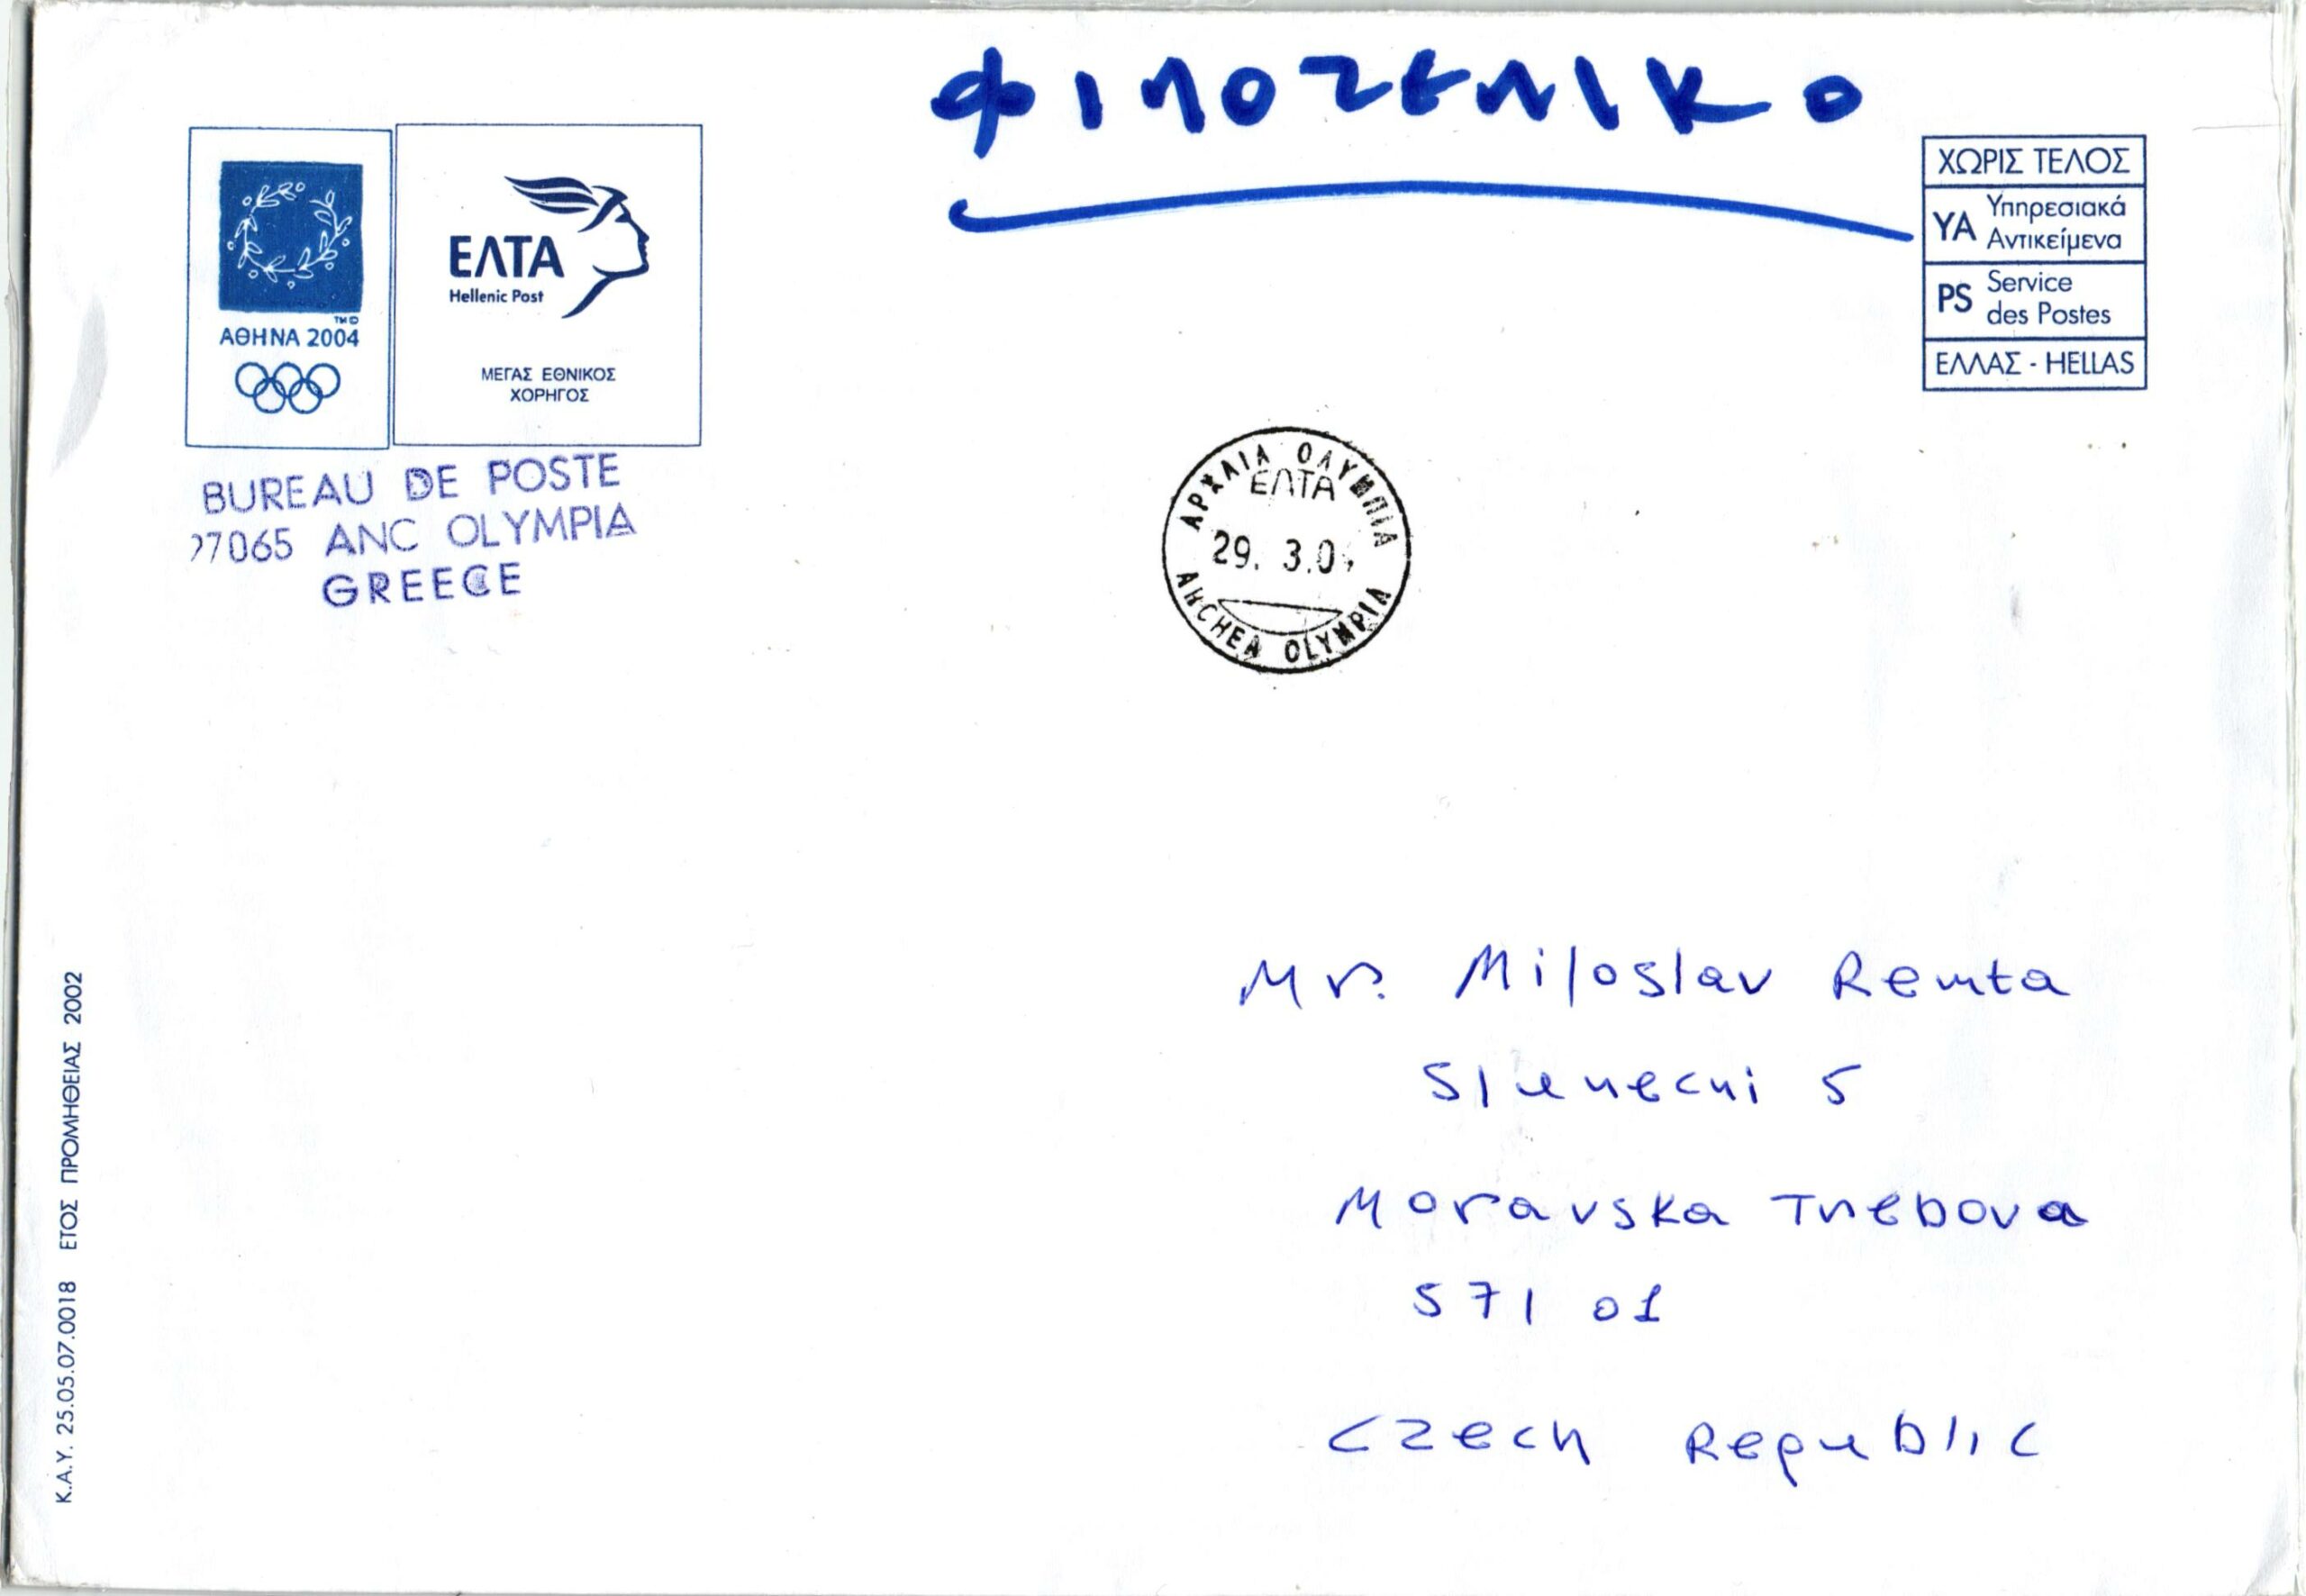 ΦΙΛΟΤΕΛΙΚΟ
ΑΘΗΝΑ 2004
ΕΛΤΑ
Hellenic Post
ΜΕΓΑΣ ΕΘΝΙΚΟΣ
ΧΟΡΗΓΟΣ
ΧΩΡΙΣ ΤΕΛΟΣ
ΥΑ Υπηρεσιακά
Αντικείμενα
PS Service
des Postes
ΕΛΛΑΣ - HELLAS
BUREAU DE POSTE
27065 ANC OLYMPIA
GREECE
ΑΡΧΑΙΑ ΟΛΥΜΠΙΑ
ΕΛΤΑ
29. 3.0
ARCHEA OLYMPIA
Mr. Miloslav Remta
Slunecni 5
Moravska Trebova
571 01
Czech Republic
Κ.Α.Υ. 25.05.07.0018 ΕΤΟΣ ΠΡΟΜΗΘΕΙΑΣ 2002